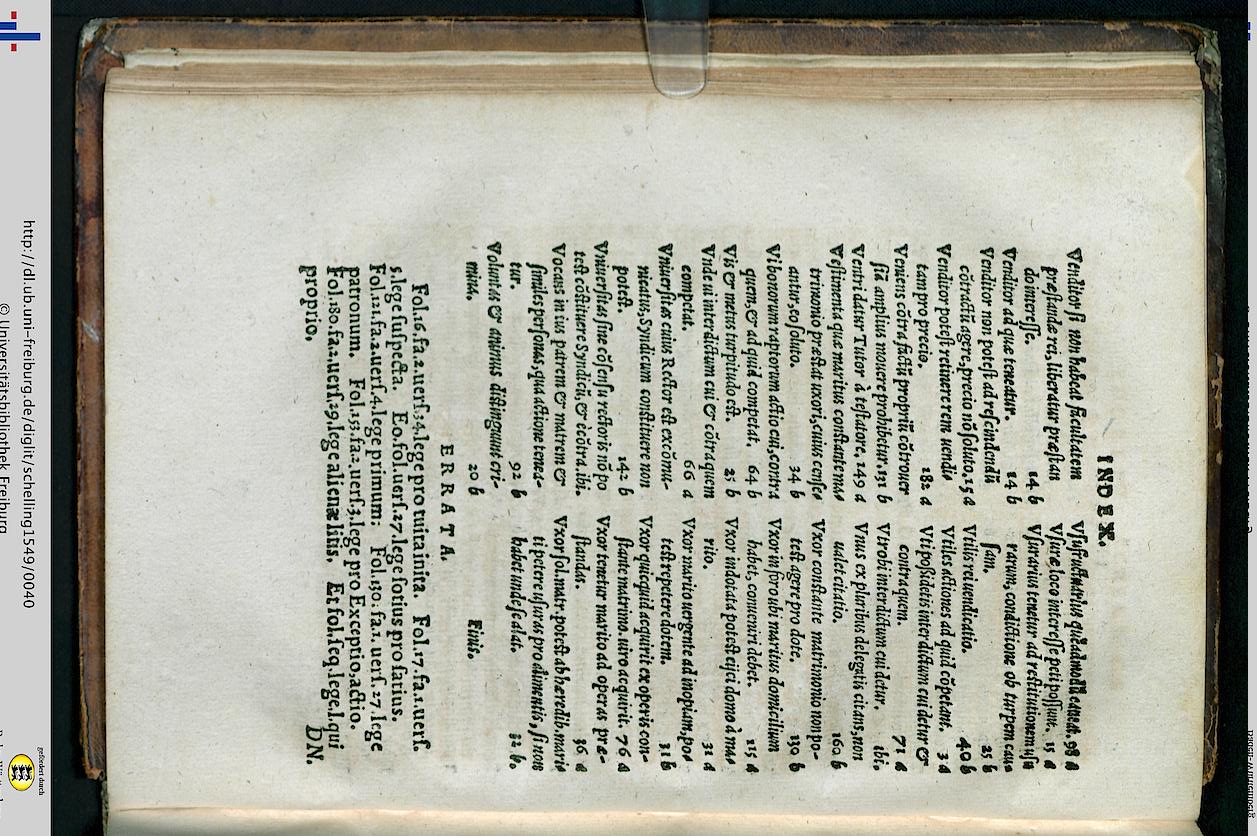 INDEX.
Venditor si non habeat facultatem
præstandæ rei, liberatur præstan
do interesse. 14 b
Venditor ad quæ teneatur. 14 b
Venditor non potest ad rescindendū
cōtractū agere, precio nō soluto. 15 a
Venditor potest retinere rem uendi⸗
tam pro precio. 182 a
Veniens cōtra factū propriū cōtrouer
siā amplius mouere prohibetur. 131 b
Ventri datur Tutor à testatore. 149 a
Vestimenta quæ maritus constante ma⸗
trimonio præstat uxori, cuius cense⸗
antur, eo soluto. 34 b
Vi bonorum raptorum actio cui, contra
quem, & ad quid competat. 64 b
Vis & metus turpitudo est. 25 b
Vnde ui interdictum cui & cōtra quem
competat. 66 a
Vniuersitas cuius Rector est excōmu⸗
nicatus, Syndicum constituere non
potest. 142 b
Vniuersitas siue cōsensu rectoris nō po
test cōstituere Syndicū, & ecōtra. ibi.
Vocans in ius patrem & matrem &
similes personas, qua actione tenea⸗
tur. 92 b
Voluntas & animus distinguunt cri⸗
mina. 20 b
Vsufructuarius quēadmodū caueat. 98 a
Vsuræ loco interesse peti possunt. 15 a
Vsurarius tenetur ad restitutionem usu
rarum, conditione ob turpem cau⸗
sam. 25 b
Vtilis rei uendicatio. 40 b
Vtiles actiones ad quid cōpetant. 3 a
Vti poßidetis interdictum cui detur &
contra quem. 71 a
Vtrobi interdictum cui detur. ibi.
Vnus ex pluribus delegatis citans, non
ualet citatio. 160 b
Vxor constante matrimonio non po⸗
test agere pro dote. 130 b
Vxor in foro ubi maritus domicilium
habet, conueniri debet. 115 a
Vxor indotata potest eijci domo à ma⸗
rito. 31 a
Vxor marito uergente ad inopiam, po⸗
test repetere dotem. 31 b
Vxor quicquid acquirit ex operis con⸗
stante matrimo. uiro acquirit. 76 a
Vxor tenetur marito ad operas præ⸗
standas. 36 a
Vxor sol. matr. potest ab hæredib. mari⸗
ti petere usuras pro alimentis, si non
habet unde se alat. 32 b.
Finis.
ERRATA.
Fol.16.fa.2.uers.34.lege pro tuita inita. Fol.17.fa.1.uers.
5.lege suspecta. Eo.fol.uers.27.lege sotius pro satius.
Fol.121.fa.2.uers.4.lege primum: Fol.130.fa.1.uers.27.lege
patronum. Fol.155.fa.2.uers.3.lege pro Exceptio,actio.
Fol.180.fa.2.uers.29.lege alienæ litis. Et fol.seq.lege,l.qui
proprio.
DN.
http://dl.ub.uni-freiburg.de/diglit/schelling1549/0040
© Universitätsbibliothek Freiburg
gefördert durch